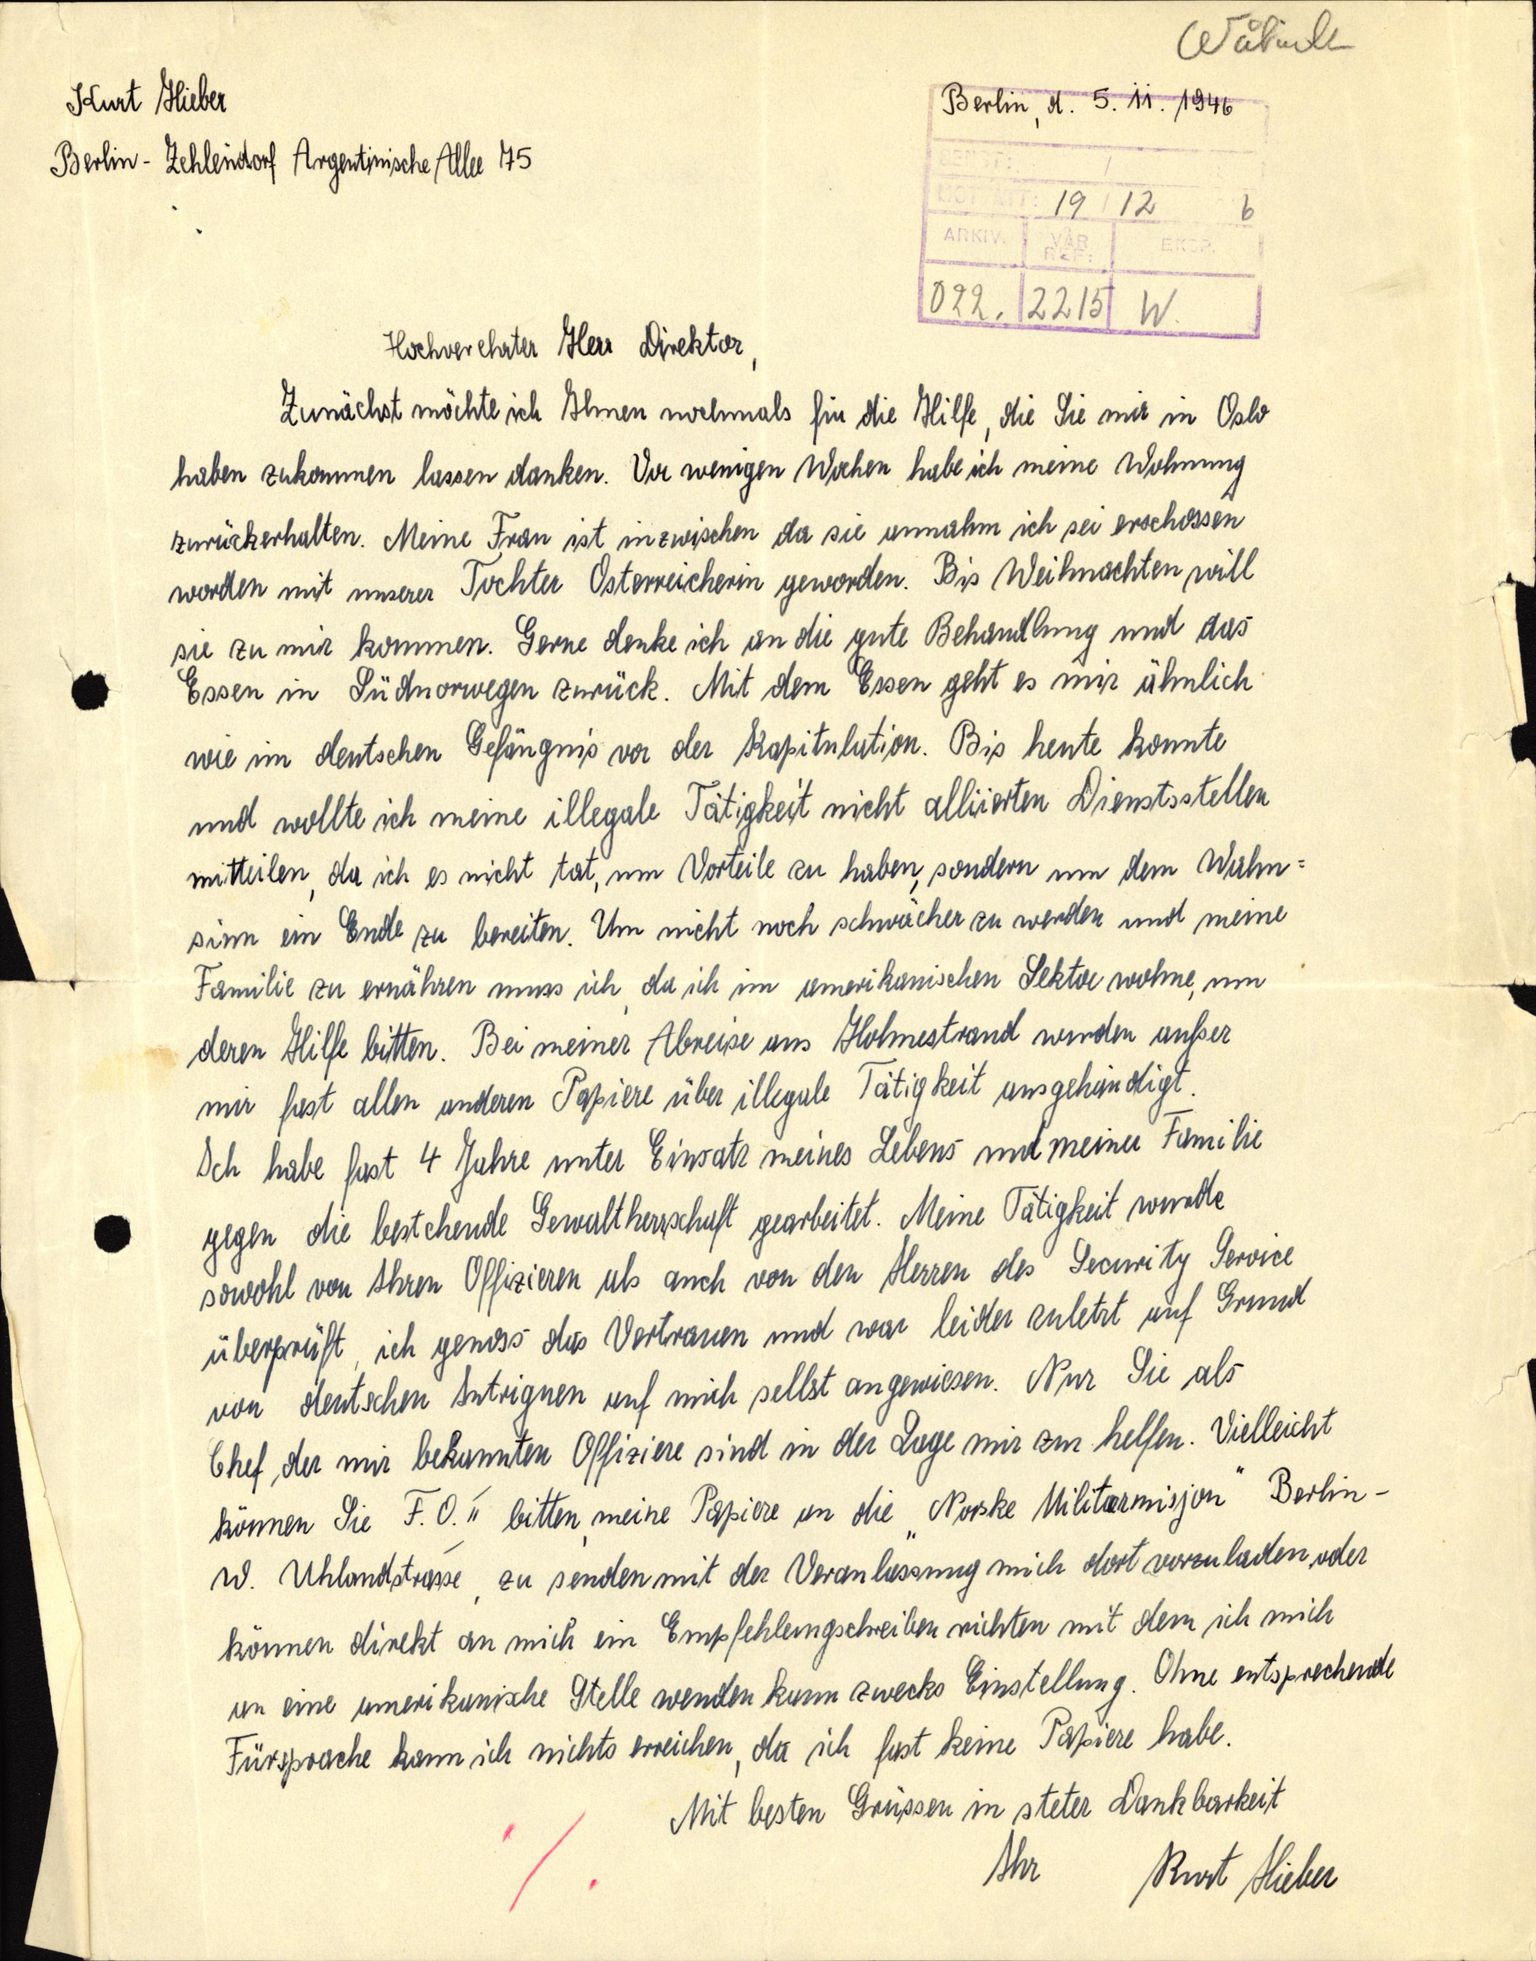 Kurt Hieber
Berlin, d. 5. 11. 1946
Berlin - Zehlendorf Argentinische Allee 75
19 / 12 6
ARKIV. VÅR REF: EKSP.
022. 2215 W.
Hochverehrter Herr Direktor,
Zunächst möchte ich Ihnen nochmals für die Hilfe, die Sie mir in Oslo
haben zukommen lassen danken. Vor wenigen Wochen habe ich meine Wohnung
zurückerhalten. Meine Frau ist inzwischen da sie annahm ich sei erschossen
worden mit unserer Tochter Österreicherin geworden. Bis Weihnachten will
sie zu mir kommen. Gerne denke ich an die gute Behandlung und das
Essen in Südnorwegen zurück. Mit dem Essen geht es mir ähnlich
wie im deutschen Gefängnis vor der Kapitulation. Bis heute konnte
und wollte ich meine illegale Tätigkeit nicht alliierten Dienstsstellen
mitteilen, da ich es nicht tat, um Vorteile zu haben, sondern um dem Wahn=
sinn ein Ende zu bereiten. Um nicht noch schwächer zu werden und meine
Familie zu ernähren muss ich, da ich im amerikanischen Sektor wohne, um
deren Hilfe bitten. Bei meiner Abreise aus Holmestrand wurden außer
mir fast allen anderen Papiere über illegale Tätigkeit ausgehändigt.
Ich habe fast 4 Jahre unter Einsatz meines Lebens und meiner Familie
gegen die bestehende Gewaltherrschaft gearbeitet. Meine Tätigkeit wurde
sowohl von Ihren Offizieren als auch von den Herren des Security Service
überprüft, ich genoss das Vertrauen und war leider zuletzt auf Grund
von deutschen Intriguen auf mich selbst angewiesen. Nur Sie als
Chef, der mir bekannten Offiziere sind in der Lage mir zur helfen. Vielleicht
können Sie F. O. II bitten, meine Papiere an die „Norske Militærmisjon" Berlin -
W. Uhlandstrasse, zu senden mit der Veranlassung mich dort vorzuladen, oder
können direkt an mich ein Empfehlungschreiben richten mit dem ich mich
an eine amerikanische Stelle wenden kann zwecks Einstellung. Ohne entsprechende
Fürsprache kann ich nichts erreichen, da ich fast keine Papiere habe.
Mit besten Grüssen in steter Dankbarkeit
Ihr Kurt Hieber